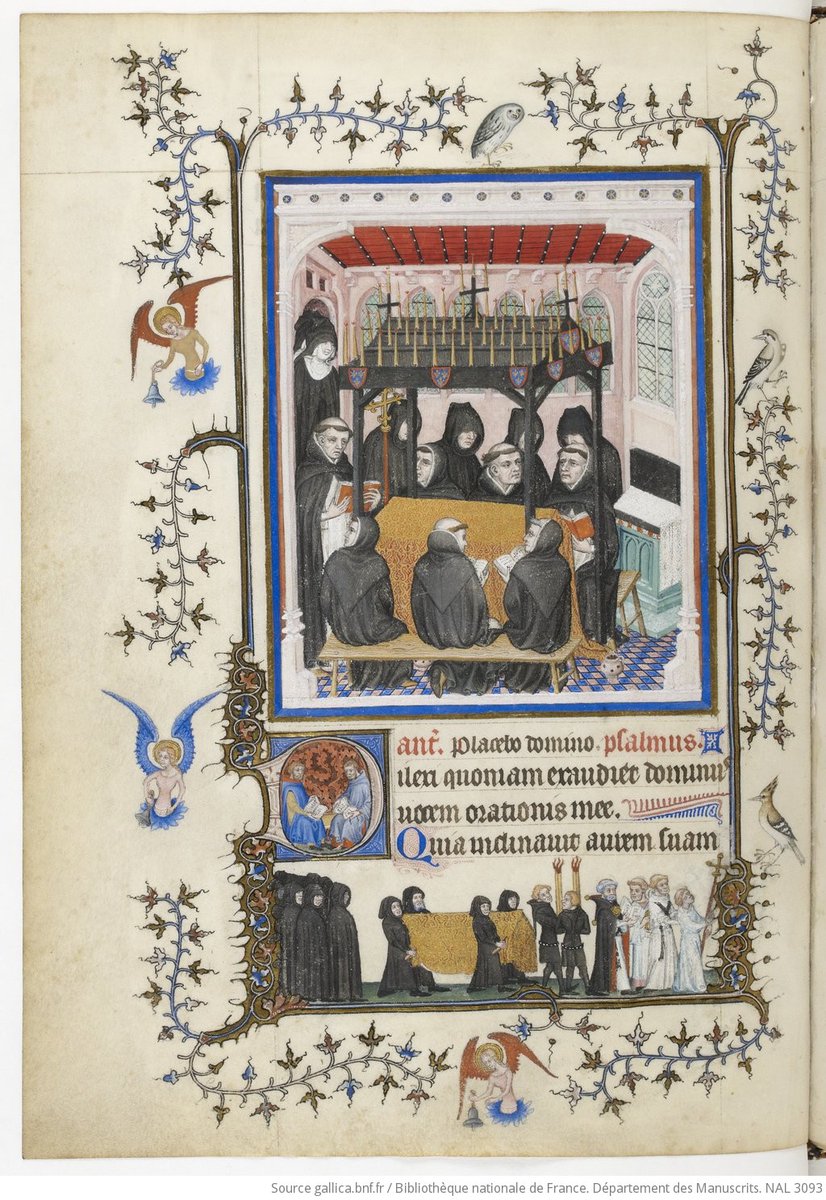 anť. Placebo domino. psalmus.
Dilexi quoniam exaudiet dominus
uocem orationis mee.
Quia inclinauit aurem suam
Source gallica.bnf.fr / Bibliothèque nationale de France. Département des Manuscrits. NAL 3093